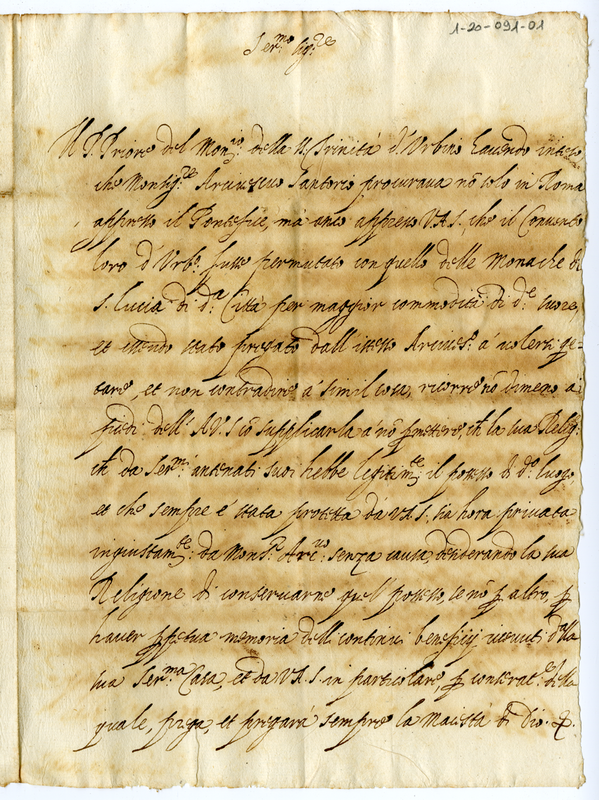 1-20-091-01
Ser.mo Sig.re
Il P. Priore del Mon.rio della SS. Trinità d'Urbino havendo inteso
che Monsig.re Arcivescuo Santorio procurava nõ solo in Roma
appresso il Pontefice, mà anco appresso V.A.S., che il Convento
loro d'Urb.o fusse permutato con quello delle Monache di
S. Lucia di d.a Città per maggior commodità di d.e suore,
et essendo stato pregato dall'istesso Arcives.o à volersi
tare, et non contradire à simil cosa, ricorre nõ dimeno a i
piedi dell'A.V.S. cõ supplicarla à nõ permettere, ch la sua Relig.
ch da Ser.mi antenati suoi hebbe legitim.te il possesso di d.o luogo
et che sempre è stata protetta dà V.A.S. sia hora privata
ingiustam.te da Mons.r Arc.vo senza causa, desiderando la sua
Religione di conservarne quel possesso, se nõ p altro, p
haver ppetua memoria delli continui beneficij ricevuti dalla
sua Ser.ma Casa, et da V.A.S. in particolare, p conservat.e della
quale, prega, et pregarà sempre la Maestà di Dio. &.